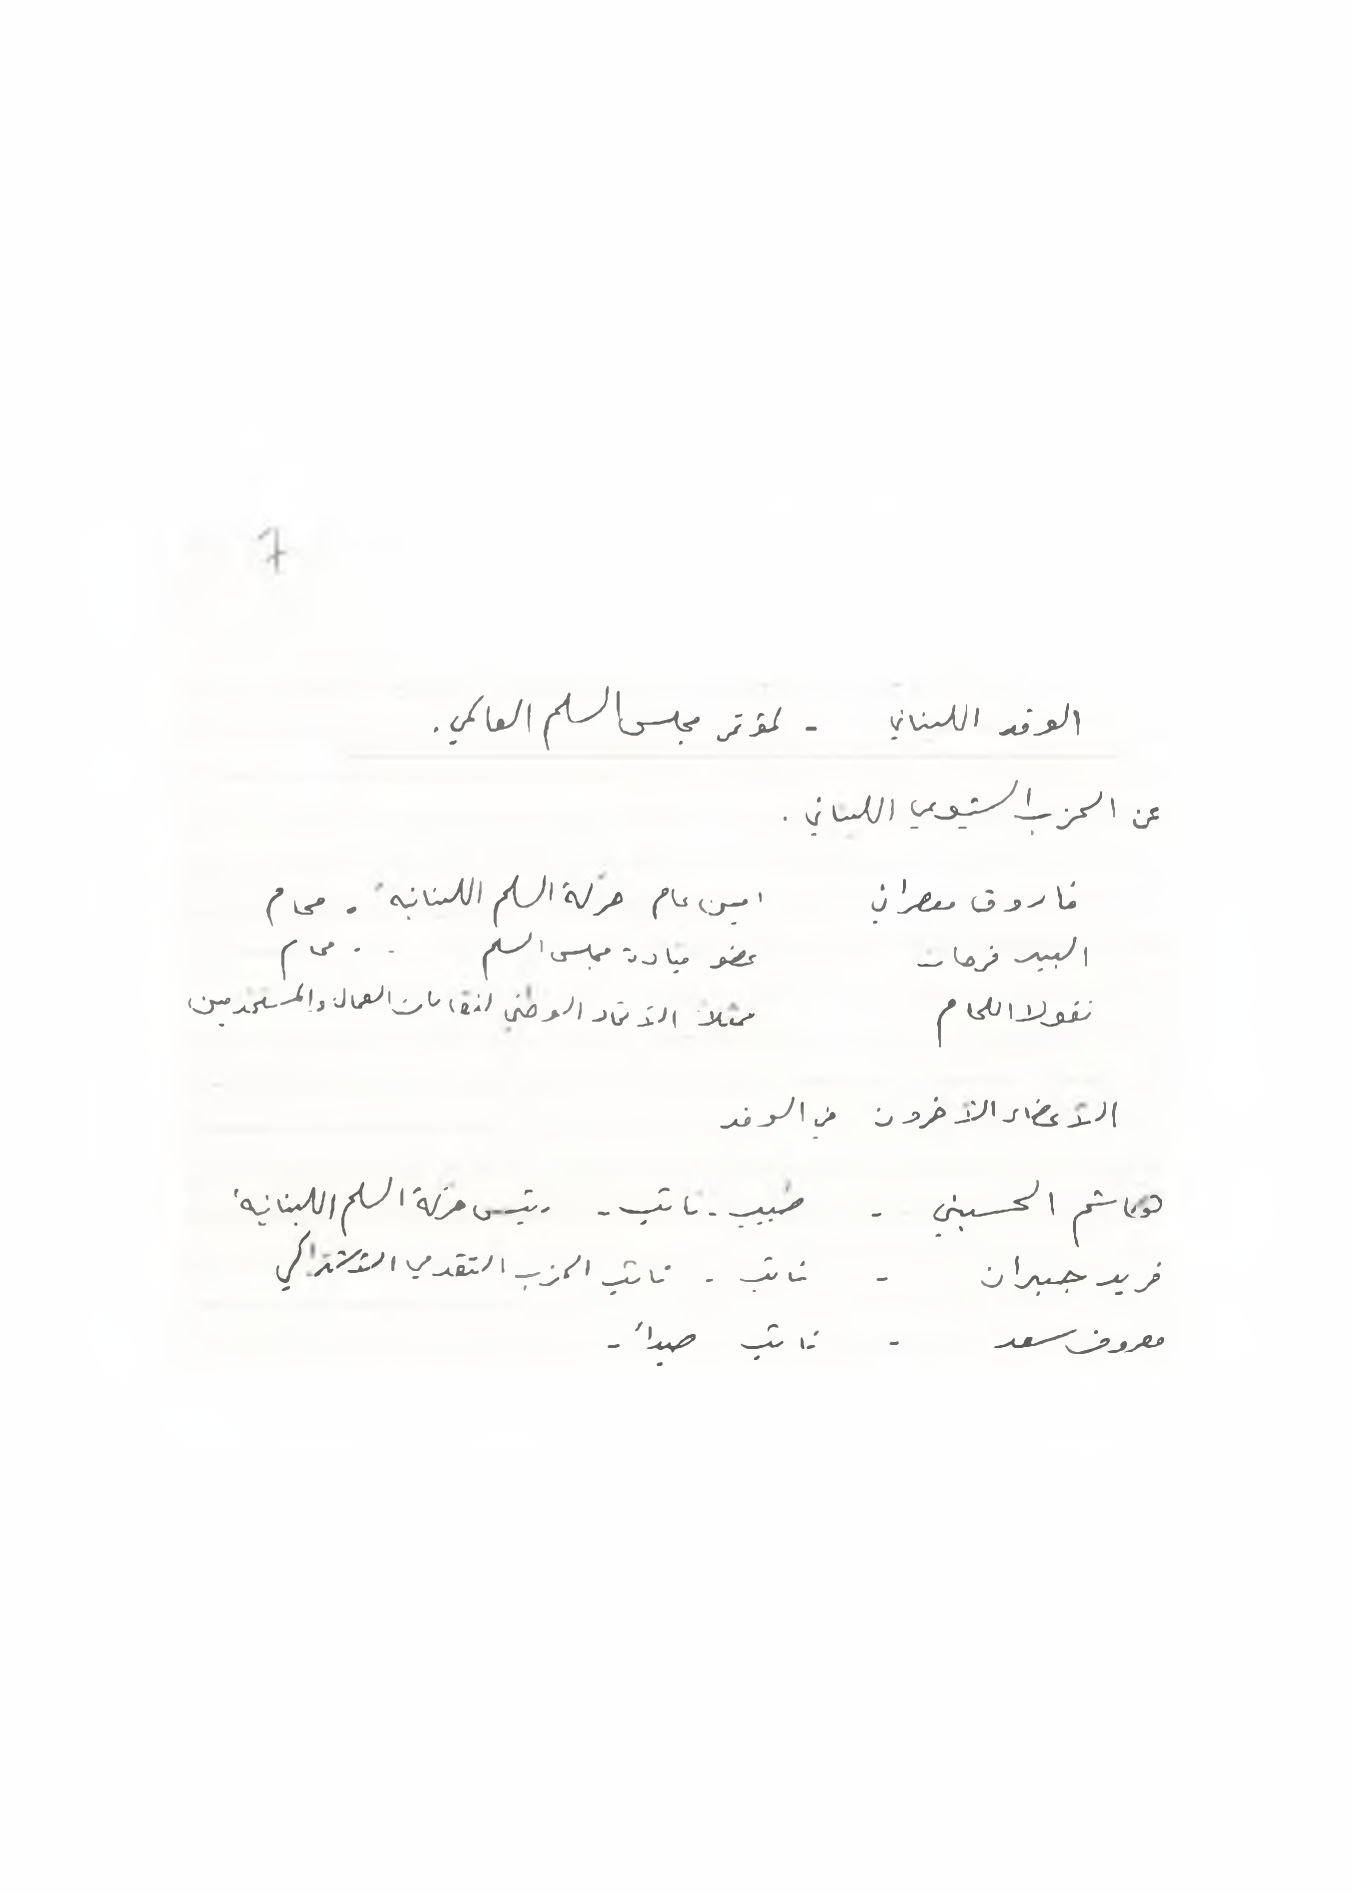 7
الوفد اللبناني - لمؤتمر مجلس السلم العالمي.
عن الحزب الشيوعي اللبناني.
فاروق معصراني امين عام حركة السلم اللبنانية. محام
البير فرحات عضو قيادة مجلس السلم . . محام
نقولا اللحام ممثلا الاتحاد الوطني لنقابات العمال والمستخدمين
الأعضاء الآخرون في الوفد
هاشم الحسيني - طبيب - نائب - رئيس حركة السلم اللبنانية
فريد جبران - نائب - نائب الحزب التقدمي الاشتراكي
معروف سعد - نائب صيدا -